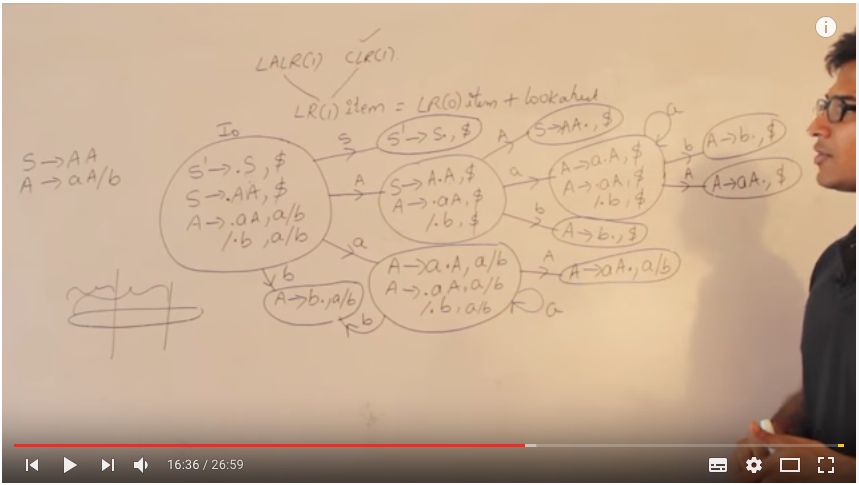 LALR(1) CLR(1)
LR(1) item = LR(0) item + lookahead
S → AA
A → aA/b
I₀
S' → .S, $
S → .AA, $
A → .aA, a/b
/.b, a/b
S
S' → S., $
A
S → A.A, $
A → .aA, $
/.b, $
A
S → AA., $
a
A → a.A, $
A → .aA, $
/.b, $
a
b
A → b., $
A
A → aA., $
b
A → b., $
a
A → a.A, a/b
A → .aA, a/b
/.b, a/b
A
A → aA., a/b
a
b
b
A → b., a/b
16:36 / 26:59